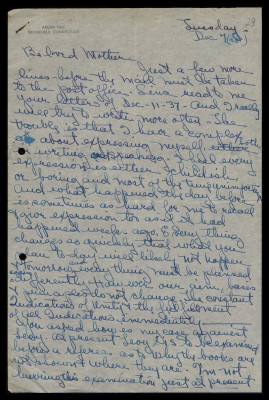 Tuesday
Dec
Beloved Mother
Just a few more
lines before the mail must be taken
to the post office. Lena read to me
your letter of Dec-11-37. And I really
will try to write more often. The
trouble is that I have a complex
about expressing myself either both
writing speaking. I feel every
expression is either childish
or boring and most of the time unimportant
And what happened the day before
is sometimes as hard for me to recall
for expression to as if it had
happened weeks ago, & every thing
changes so quickly that what you
plan to day will likely not happen
tomorrow every thing must be planned
differently. However our aim, bases
& principles do not change, the constant
indications of time & the fulfillment
of indications immediately.
You asked how is my case against
Levy. At present Levy is to be examined
before a referee, as to why the books are
not shown & where they are. I'm not
having this examination just at present